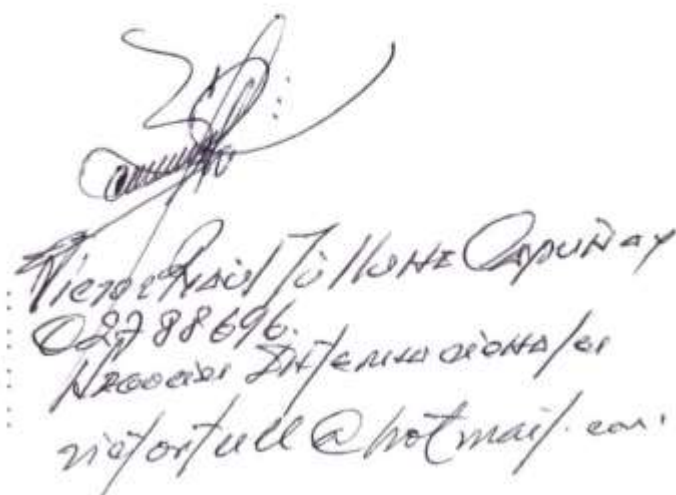 Victor Raúl Tullume Capuñay
02788696.
Negocios Internacionales
victortull@hotmail.com.